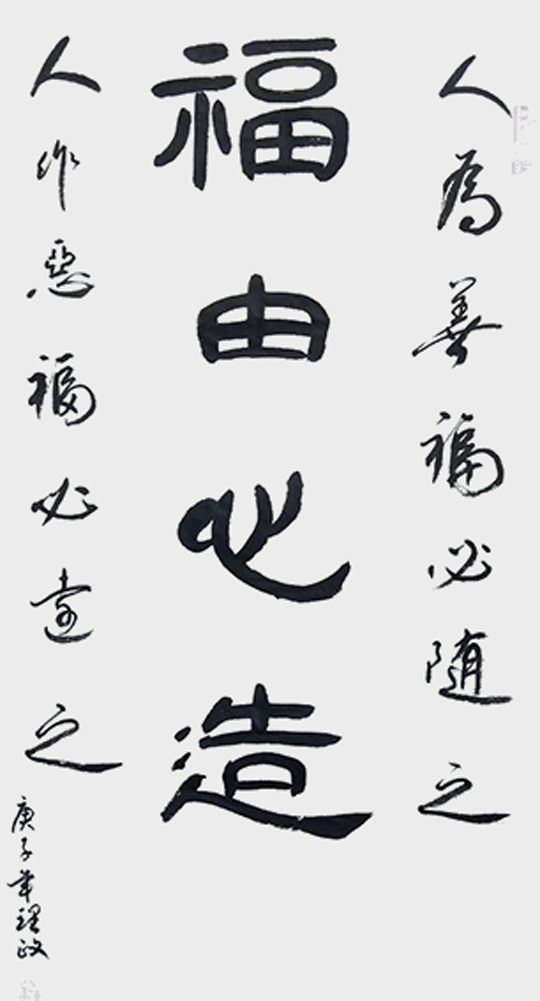 人為善福必随之
福由心造
人作惡福必遠之
庚子年理政